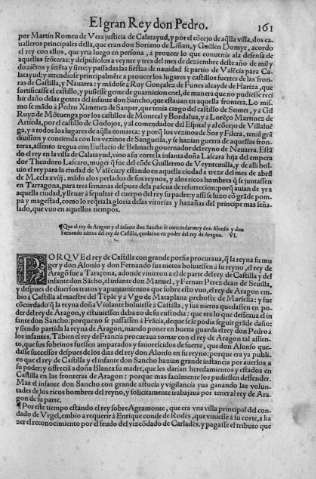 El gran Rey don Pedro. 161
por Martin Romeu de Vera justicia de Calatayud, y por el cõcejo de aq̃lla villa, dos ca-
ualleros principales della, que eran don Soriano de Liñan, y Guillen
el rey con ellos, que yria luego en persona, a proueer lo que conuenia ala defensa de
aquellas fróteras: y despidiolos a veynte y tres del mes de deziembre deste año de mil y
dozientos y setēta y seys: y passadas las fiestas de nauidad se partio de Valēcia para Ca-
latayud, y attendio principalmente a proueer los lugares y castillos fuertes de las fronte-
ras de Castilla, y Nauarra y mãdose a Ruy Gonçalez de Funes alcayde de Hariza, que
fortificasse el castillo, y pusiesse gente de guarnicion en el, de manera que no pudiesse reci
bir daño delas gentes del infante don Sancho, que estauan en aquella frontera. Lo mis-
mo se mãdo a Pedro Ximenez de Sanper, que tenia cargo del castillo de Somet, y a Gil
Ruyz de Mõtuenga por los castillos de Monreal y Bordalua, y a Lorẽço Martinez de
Artieda, por el castillo de Godojos, y al comendador del Espital y al cõcejo de Villalué-
ga, y a todos los lugares de aq̃lla comarca: y porq̃ los vezinos de Sos y Filera, teniã grã
dissension y contienda con los vezinos de Sanguessa, y se hazian guerra de aquellas fron-
teras, assento tregua con Eustacio de Belmarch gouernador del reyno de Nauarra. Estã
do el rey en la villa de Calatayud, vino aqlla infanta doña Lascara hija del empera
dor Theodoro Lascaro, muger q̃ fue del cõde Guillermo de Veyntemilla, y de alli bol-
uio el rey para la ciudad de Valécia: y estando en aquella ciudad a treze del mes de abril
de M.cc.lxxvij. mãdo alos perlados de sus reynos, y alos ricos hombres q̃ se juntassen
en Tarragona, para tres semanas despues dela pascua de resurrecion: porq̃ auian de yr a
aquella ciudad, y lleuar a sepultar el cuerpo del rey su padre: y assi se hizo cõ grãde pom-
pa y magestad, como lo req̃ria la gloria de las vitorias y hazañas del principe mas seña-
lado, que vuo en aquellos tiempos.
¶ Que el rey de Aragon y el infante don Sancho se concordaron: y don Alonso y don
Fernando nietos del rey de Castilla, quedaron en poder del rey de Aragon. VI.
PORQVE el rey de Castilla con grande priessa procuraua, q̃ la reyna su mu
ger y don Alonso y don Fernando sus nietos boluiessen a su reyno, el rey de
Aragõ fue a Taraçona, adonde vinieron a el de parte del rey de Castilla y del
infante don Sácho, el infante don Manuel, y Fernan Perez dean de Seuilla,
y despues de diuersos tratos y ayuntamientos que sobre ello vuo, el rey de Aragon em-
bio a Castilla al maestre del Tēple y a Vgo de Mataplana preboste de Marsella: y fue
concordado q̃ la reyna Violante se boluiesse a Castilla, y sus nietos quedassen en po-
der del rey de Aragon, y estuuiessen debaxo de su custodia: que era lo que desseaua el in
fante don Sancho, porque no se passassen a Frãcia, de que se le podia seguir grãde daño: y
y siendo partida la reyna de Aragon, mando poner en buena guarda el rey don Pedro a
los infantes. Tãbien el rey de Francia procuraua tomar con el rey de Aragon tal assien-
to, que sus sobrinos fuessen amparados y fauorecidos de suerte, que don Alonso que-
dasse successor despues de los dias del rey don Alonso en su reyno: porque era ya publi-
co que el rey de Castilla y el infante don Sancho hazian grande instãcia por auerlos a
su poder: y ofrecia a doña Blanca su madre, que les darian heredamientos y estados en
Castilla en las fronteras de Aragon: porque mas facilmente los pudiessen defender.
Mas el infante don Sancho con grande astucia y vigilancia yua ganando las volun-
tades de los ricos hombres del reyno, y solicitamente trabajaua por traer al rey de Ara
gon de su parte.
¶ Por este tiempo estando el rey sobre Agramonte, que era vna villa principal del con-
dado de Vrgel, embio a requerir a Enrique conde de Rodes, que viniesse a su corte, a ha
zer el reconocimiento por el feudo del vizcõdado de Carlades, y pagasse el tributo que